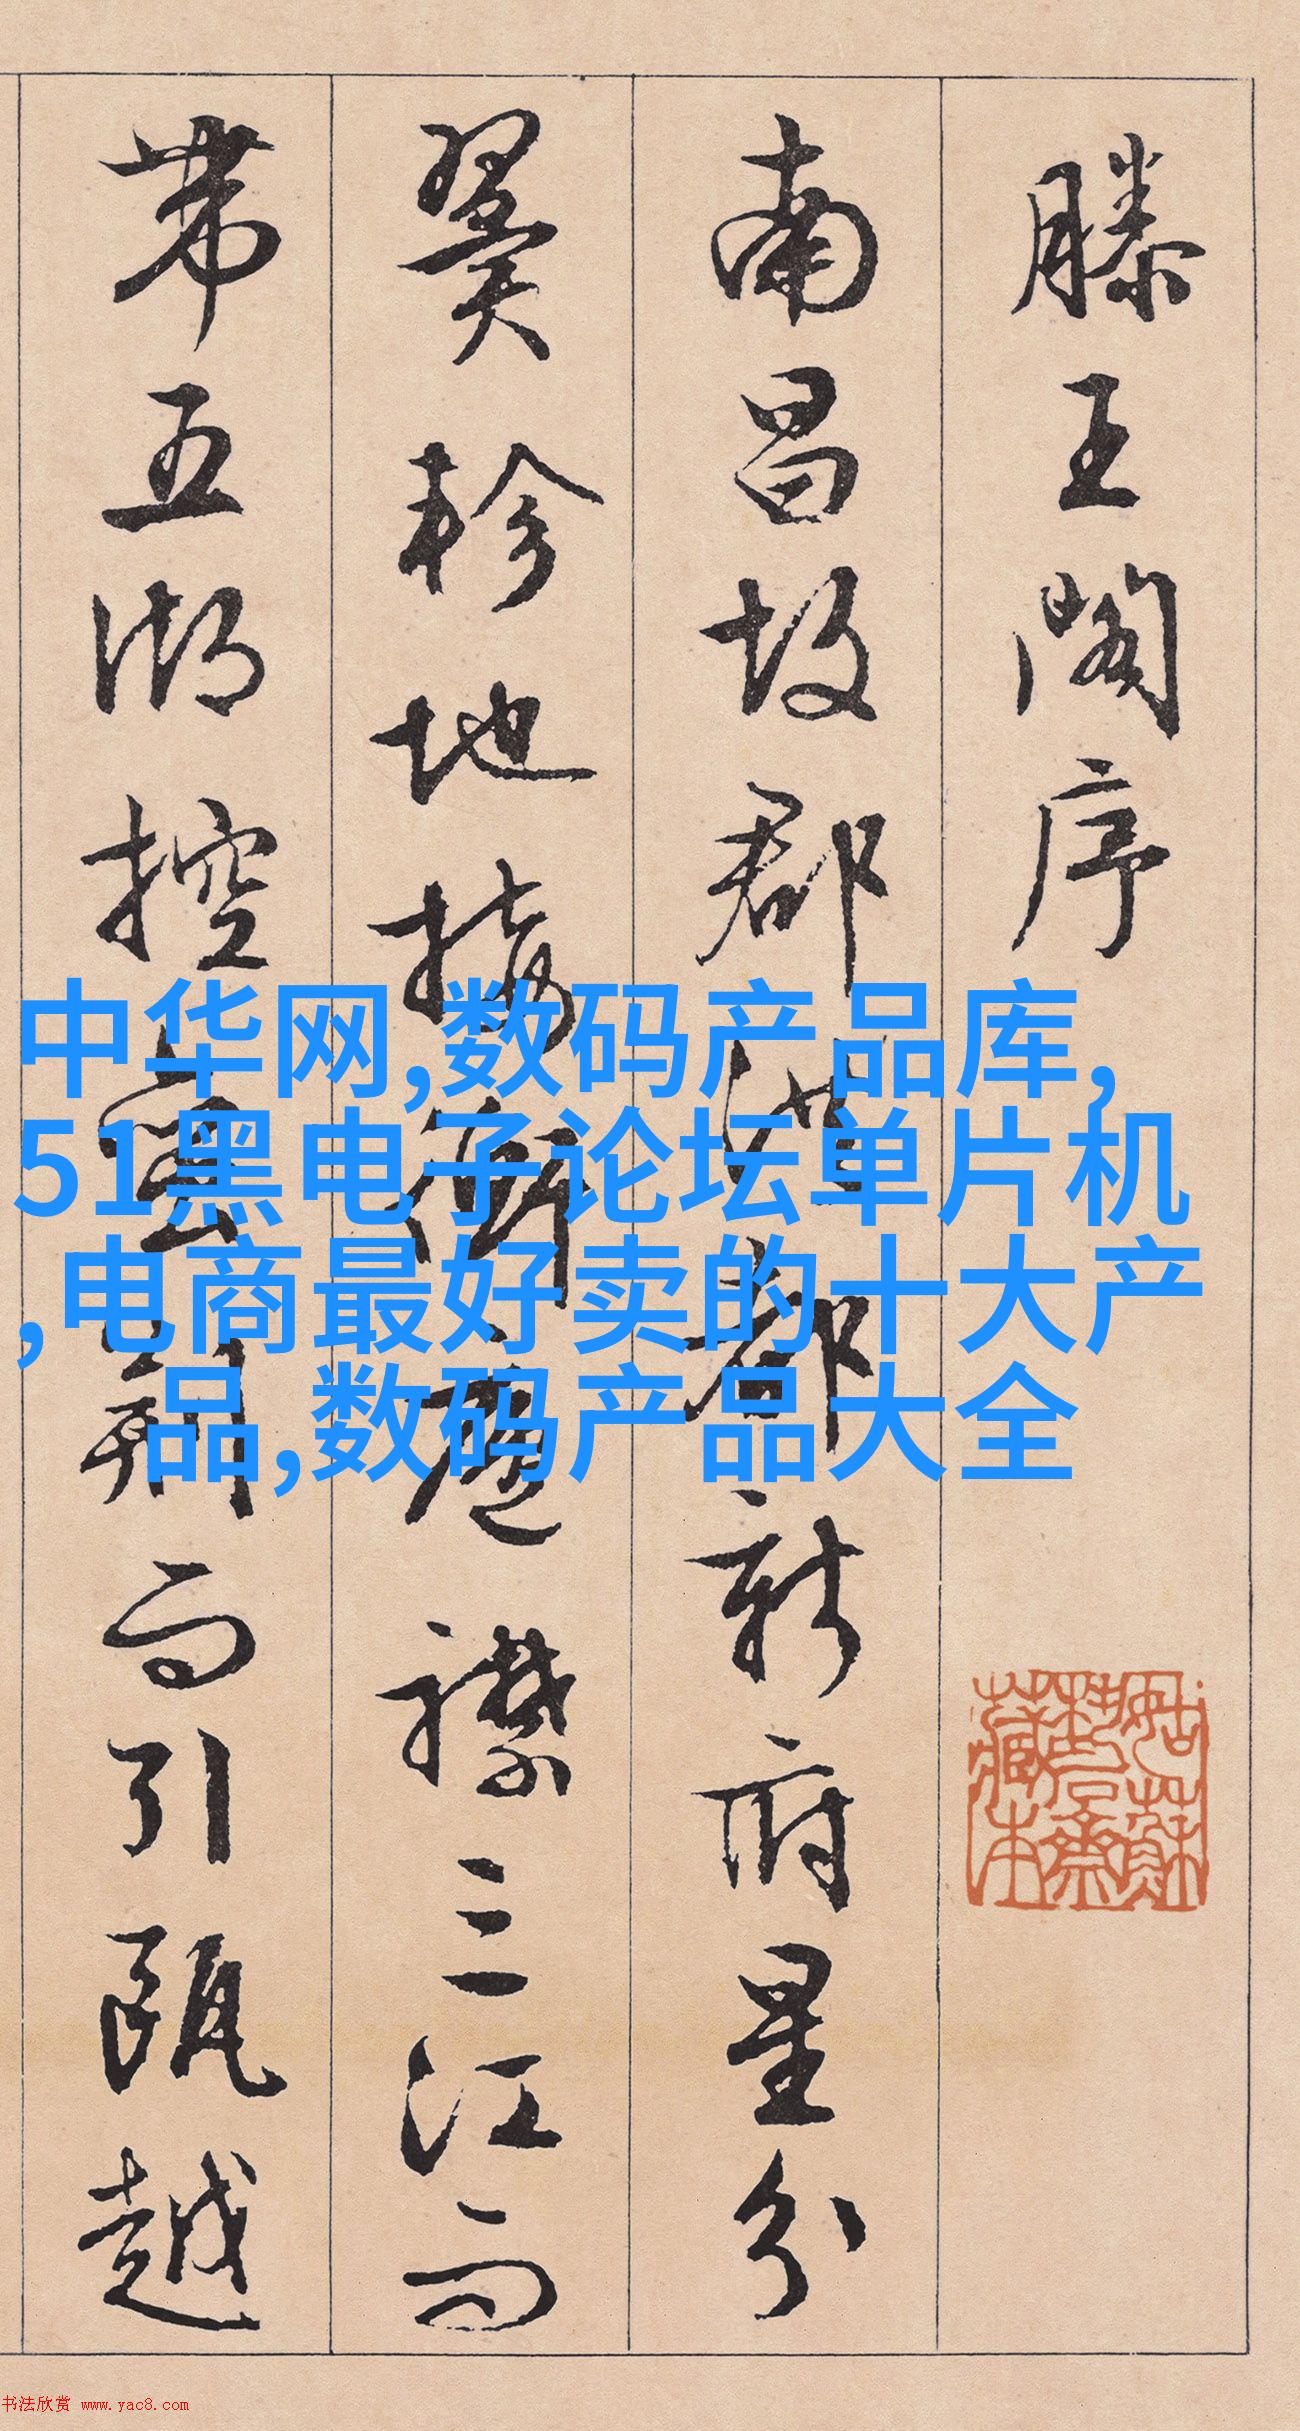 滕王閣序
南昌故郡洪都新府星分
翼軫地接衡廬襟三江而
帶五湖控蠻荆而引甌越
中华网,数码产品库,
51黑电子论坛单片机
,电商最好卖的十大产
品,数码产品大全
书法欣赏 www.yac8.com